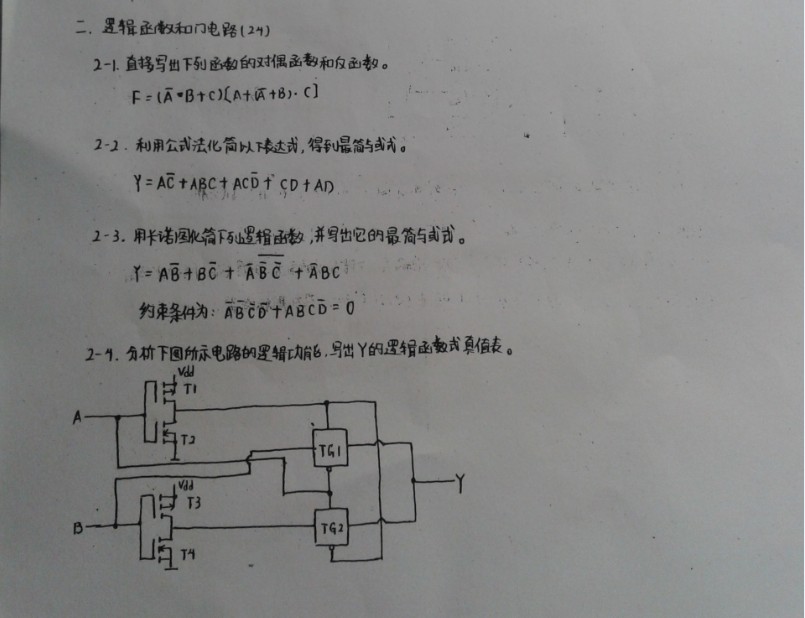 二. 逻辑函数和门电路(24)
2-1. 直接写出下列函数的对偶函数和反函数。
F = (A̅·B+C)[A+(A̅+B)·C]
2-2. 利用公式法化简以下表达式,得到最简与或式。
Y = AC̅ + ABC + ACD̅ + CD + AD
2-3. 用卡诺图化简下列逻辑函数,并写出它的最简与或式。
Y = AB̅ + BC̅ + A̅ B̅ C̅ + A̅BC
约束条件为: A̅B̅C̅D̅ + ABCD̅ = 0
2-4. 分析下图所示电路的逻辑功能,写出Y的逻辑函数式真值表。
Vdd
T1
A
T2
TG1
Vdd
T3
Y
B
TG2
T4